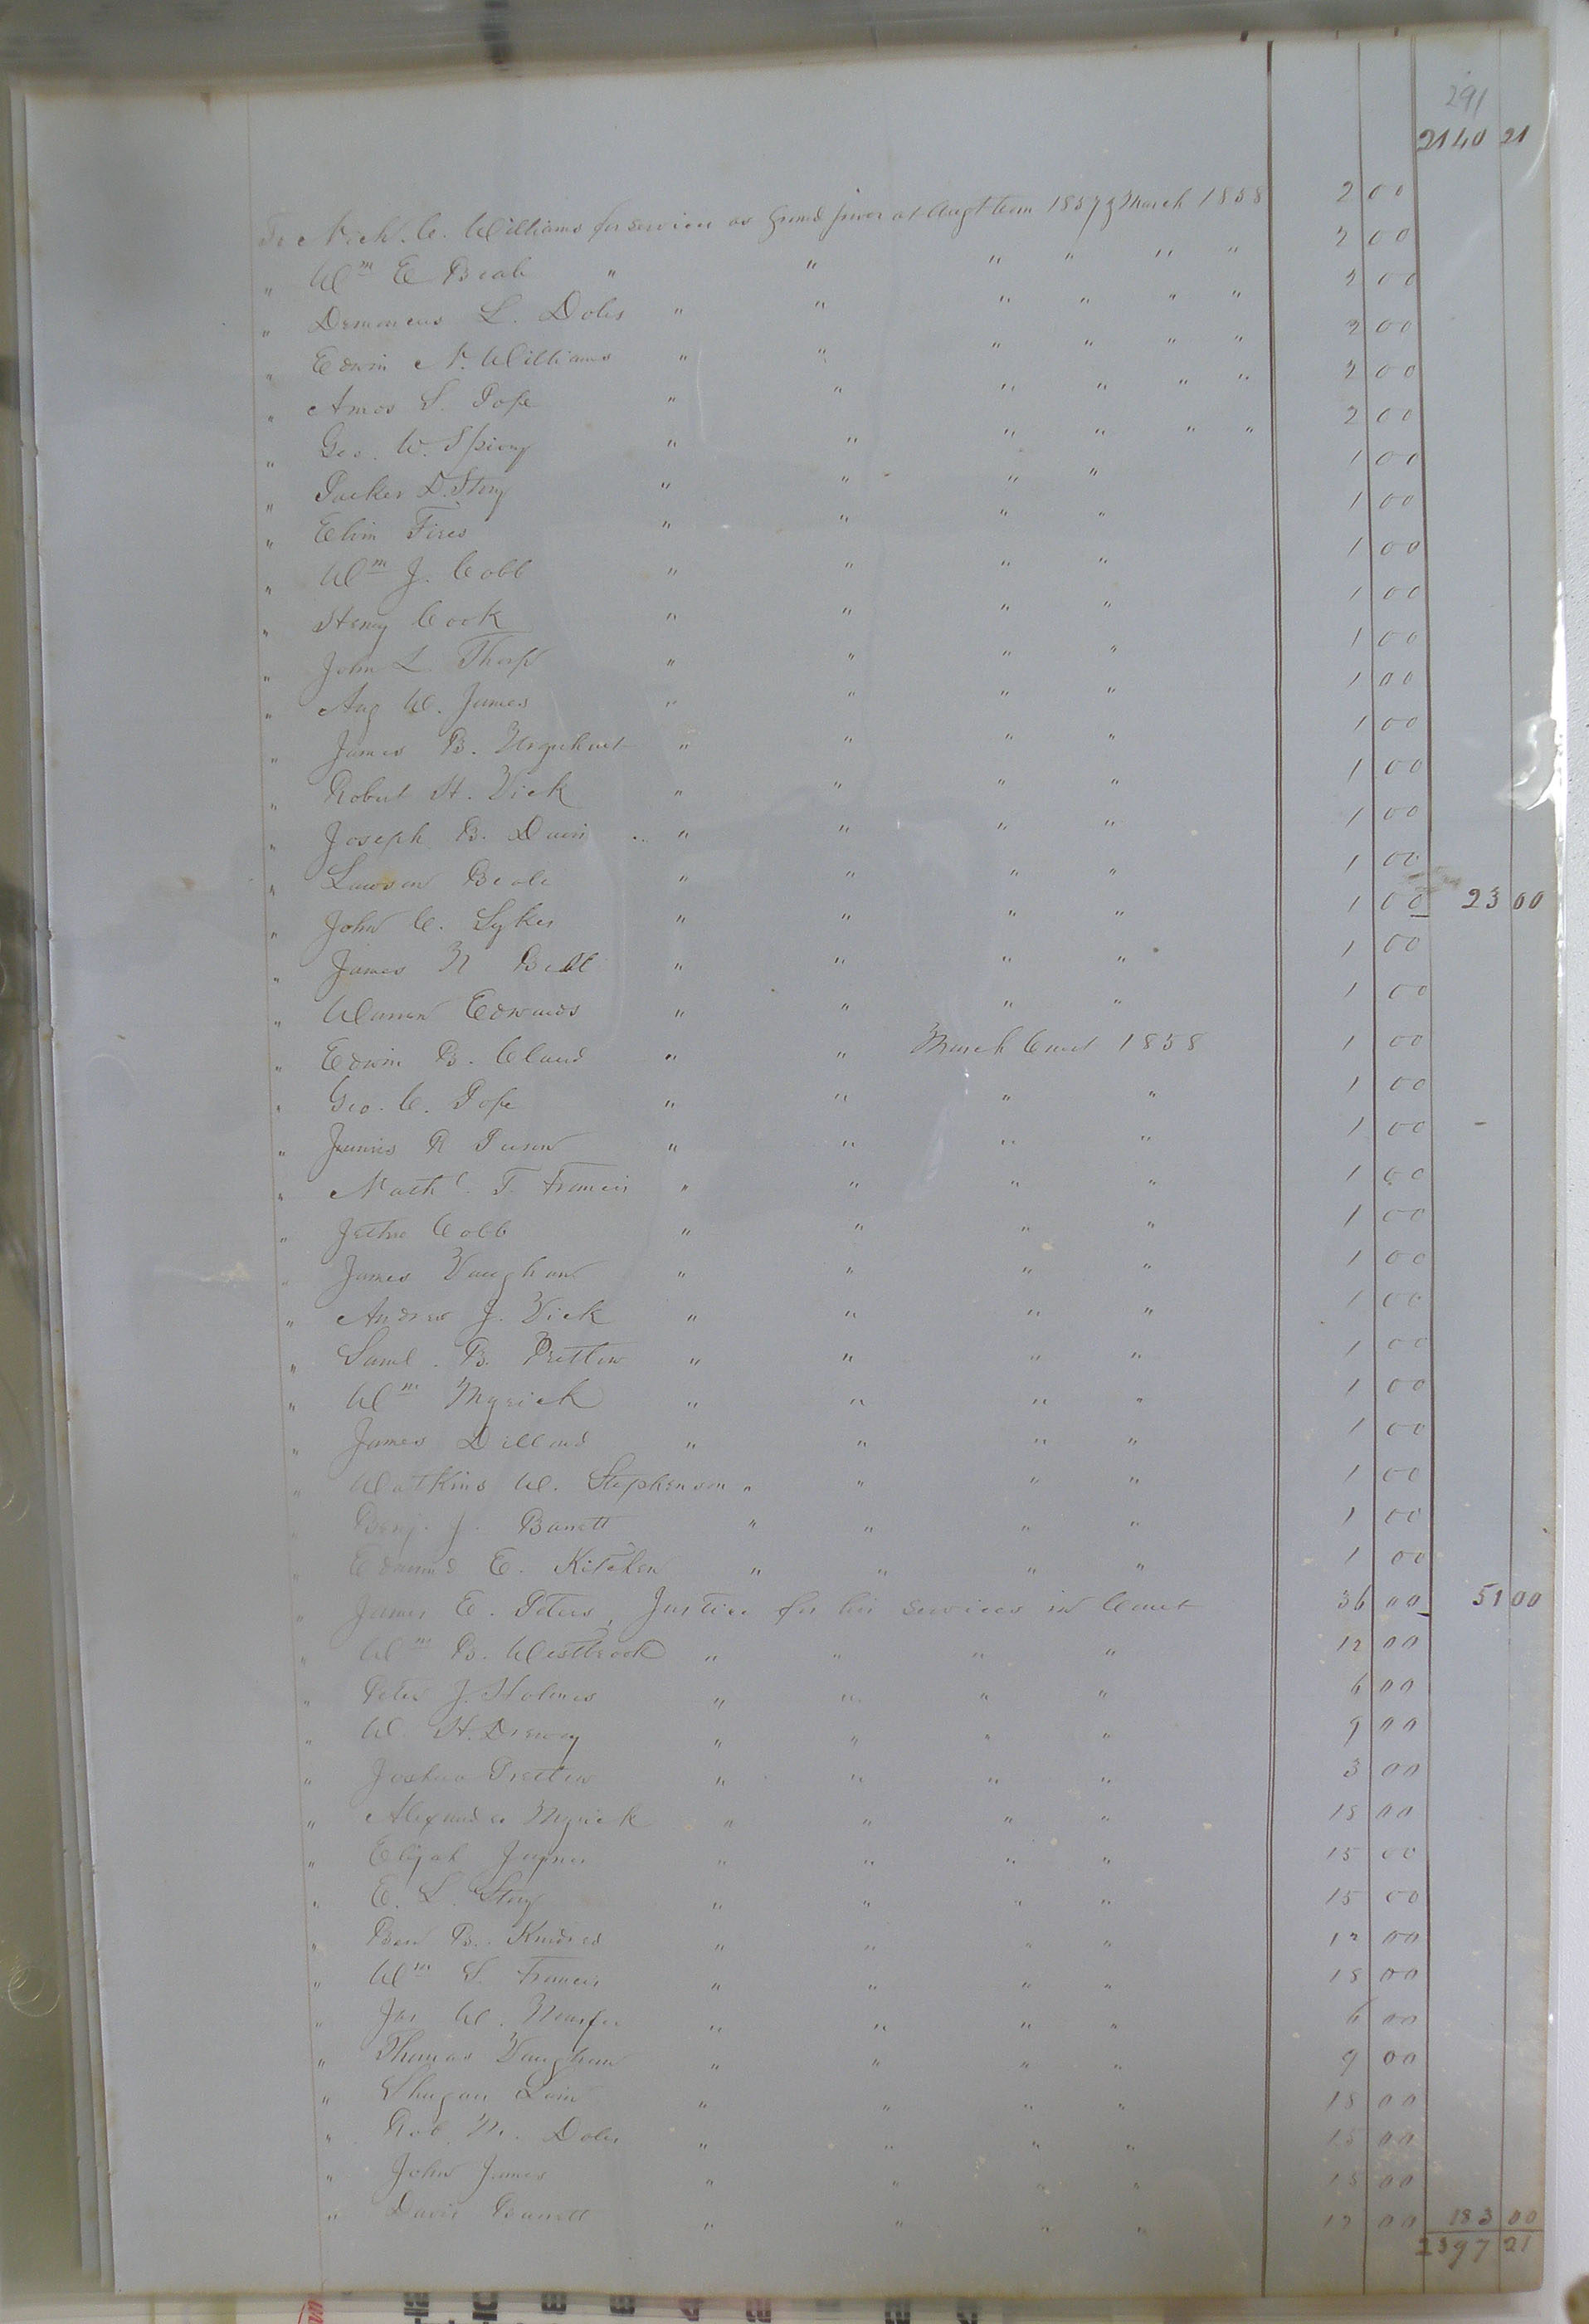 291
2140 21
To Nich. C. Williams for services as Grand juror at Augt term 1857 & March 1858 2 00
" Wm E Beale " " " " " " 2 00
" Demoncus L. Doles " " " " " " 2 00
" Edwin N. Williams " " " " " " 2 00
" Amos S. Pope " " " " " " 2 00
" Geo. W. Spivey " " " " " " 2 00
" Packer D. Story " " " " 1 00
" Elim Fires " " " " 1 00
" Wm J. Cobb " " " " 1 00
" Henry Cook " " " " 1 00
" John L. Thorp " " " " 1 00
" Aug W. James " " " " 1 00
" James B. Urquhart " " " " 1 00
" Robert H. Vick " " " " 1 00
" Joseph B. " " " " 1 00
" Lawson Beale " " " " 1 00
" John C. Sykes " " " " 1 00 23 00
" James N Bell " " " " 1 00
" Warren Edwards " " " " 1 00
" Edwin B. Claud " " March Court 1858 1 00
" Geo. C. Pope " " " " 1 00
" Junius R " " " " 1 00
" Nathl. T. Francis " " " " 1 00
" Jethro Cobb " " " " 1 00
" James Vaughan " " " " 1 00
" Andrew J. Vick " " " " 1 00
" Saml. B. Pretlow " " " " 1 00
" Wm Myrick " " " " 1 00
" James Dillard " " " " 1 00
" Watkins W. Stephenson " " " " 1 00
" Benj. J. Barrett " " " " 1 00
" Edmund E. Kitchen " " " " 1 00
" James E. Peters, Justice for his services in Court 36 00 51 00
" Wm B. Westbrook " " " " 12 00
" Peter J. Holmes " " " " 6 00
" W. H. Drewry " " " " 9 00
" Joshua Pretlow " " " " 3 00
" Alexander Myrick " " " " 18 00
" Elijah Joyner " " " " 15 00
" E. S. Story " " " " 15 00
" Ben B. Kindred " " " " 12 00
" Wm S. Francis " " " " 18 00
" Jas W. " " " " 6 00
" Thomas Vaughan " " " " 9 00
" Lain " " " " 18 00
" Rob. M. Doles " " " " 15 00
" John James " " " " 18 00
" David Barrett " " " " 12 00 183 00
2397 21